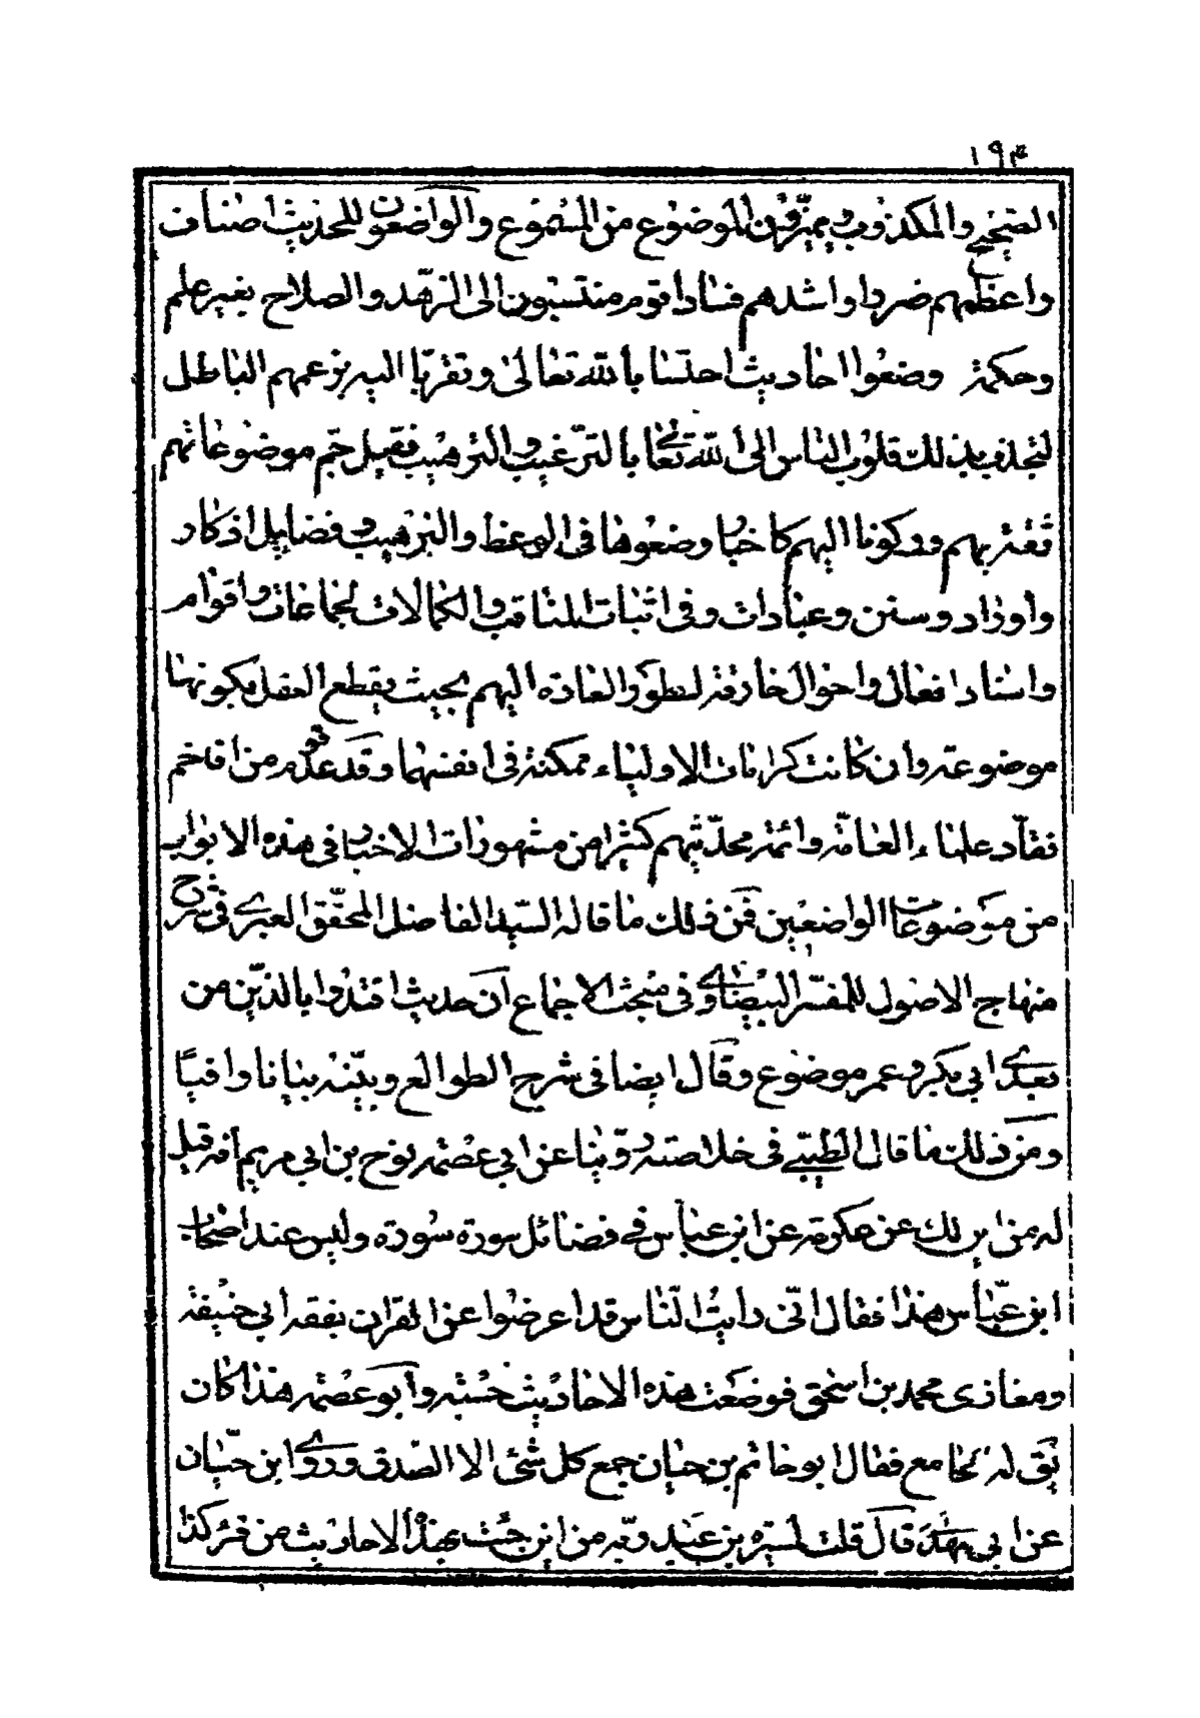 ١٩٤
الصحيح والمكذوب ويميزون الموضوع من المسموع والواضعون للحديث اصناف
واعظمهم ضررا واشدهم فسادا قوم منتسبون الى الزهد والصلاح بغير علم
وحكمة وضعوا احاديث احتسابا بالله تعالى وتقربا اليه بزعمهم الباطل
لتجذب بذلك قلوب الناس الى الله تعالى بالترغيب والترهيب فقبل جم موضوعاتهم
ثقة بهم وركونا اليهم كاخبار وضعوها في الوعظ والترهيب وفضايل اذكار
وأوراد وسنن وعبادات وفى اثبات المناقب والكمالات لجماعات واقوام
واسناد افعال واحوال خارقة لطور العادة اليهم بحيث يقطع العقل بكونها
موضوعة وان كانت كرامات الاولياء ممكنة فى انفسها وقد عد قوم من افاخم
نقاد علماء العامة وائمة محدثيهم كثيرا من مشهورات الاخبار فى هذه الابواب
من موضوعات الواضعين فمن ذلك ما قاله السيد الفاضل المحقق العبرى فى شرح
منهاج الاصول للمفسر البيضاوى فى مبحث الاجماع ان حديث اقتدوا بالذين من
بعدى ابى بكر وعمر موضوع وقال ايضا فى شرح الطوالع وبينه بيانا وافيا
ومن ذلك ما قال الطيبى فى خلاصته روينا عن ابى عصمة نوح بن ابى مريم انه قيل
له من اين لك عن عكرمة عن ابن عباس فى فضائل سورة سورة وليس عند اصحاب
ابن عباس هذا فقال انى رايت الناس قد اعرضوا عن القران بفقه ابى حنيفة
ومغازى محمد بن اسحق فوضعت هذه الاحاديث حسبة وابو عصمة هذا كان
يق له الجامع فقال ابو حاتم بن حبان جمع كل شئ الا الصدق وروى ابن حبان
عن ابى مهدى قال قلت لميسرة بن عبد ربه من اين جئت بهذا الاحاديث من قرء كذا